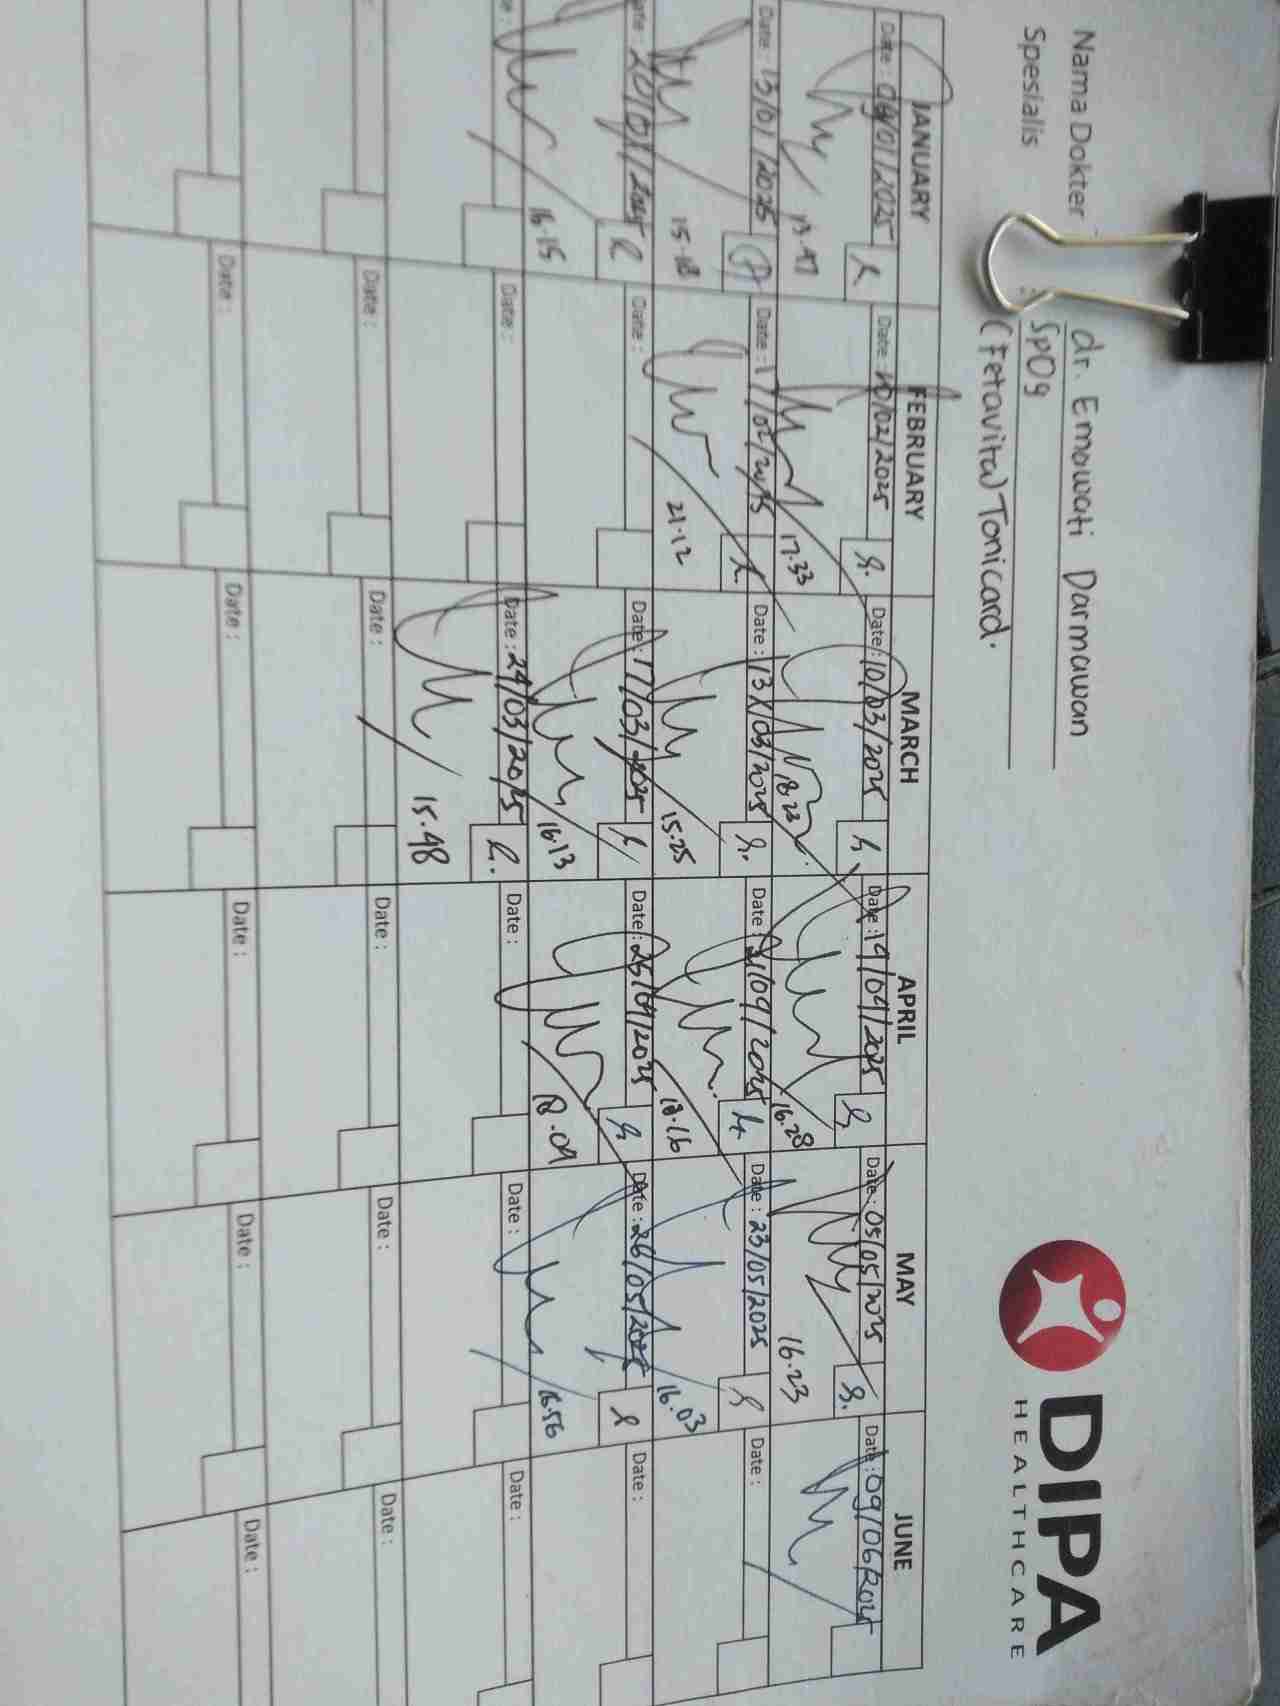 Nama Dokter : dr. Ernawati Darmawan
Spesialis : SpOg
(Fetavita) Tonicard.
DIPA
HEALTHCARE
JANUARY FEBRUARY MARCH APRIL MAY JUNE
Date : 09/01/2025 Date : 10/02/2025 Date : 10/03/2025 Date : 19/04/2025 Date : 05/05/2025 Date : 09/06/2025
17.33 18.23 16.28 16.23
Date : 13/01/2025 Date : 17/02/2025 Date : 13/03/2025 Date : 21/04/2025 Date : 23/05/2025 Date :
15.18 21.12 15.25 18.16 16.03
Date : 20/01/2025 Date : Date : 17/03/2025 Date : 25/04/2025 Date : 26/05/2025 Date :
16.15 16.13 18.09 16.56
Date : Date : 24/03/2025 Date : Date : Date :
15.48
Date : Date : Date : Date : Date :
Date : Date : Date : Date : Date :